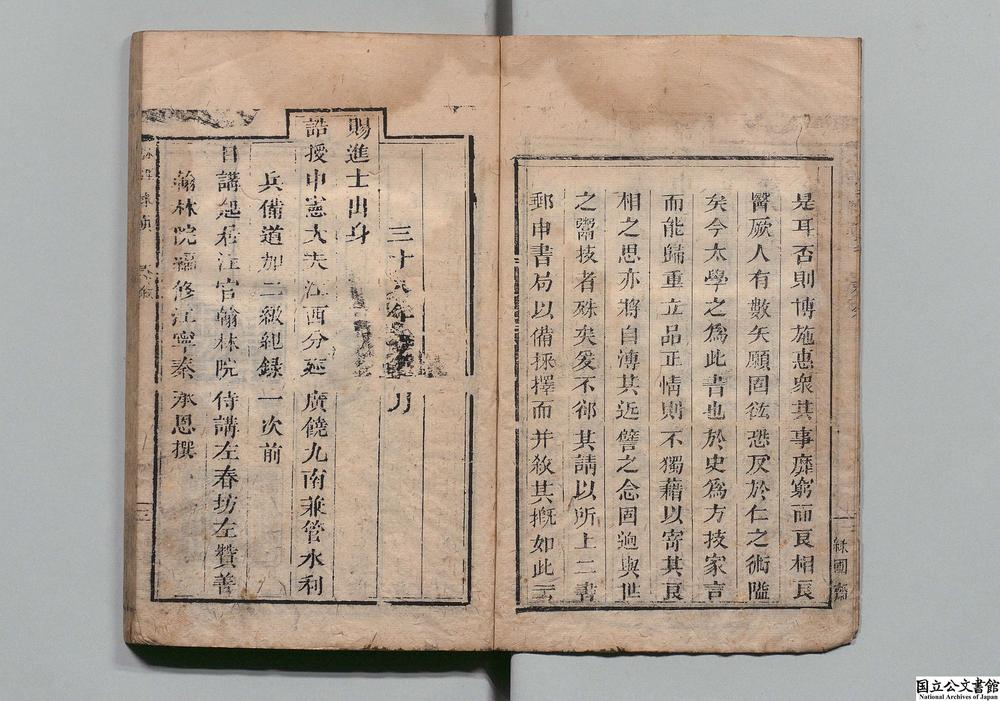 是耳否則博施惠衆其事靡窮而良相良
醫厥人有數矣願固鉉恐反於仁之術隘
矣今太學之為此書也於史為方技家言
而能歸重立品正情則不獨藉以寄其良
相之思亦將自溥其近譬之念固迥與世
之鬻技者殊矣爰不卻其請以所上二書
郵申書局以備採擇而并敘其概如此云
三十 年 月
賜進士出身
誥授中憲大夫江西分巡廣饒九南兼管水利
兵備道加二級紀錄一次前
日講起居注官翰林院侍講左春坊左贊善
翰林院編修江寧秦承恩撰
国立公文書館
National Archives of Japan